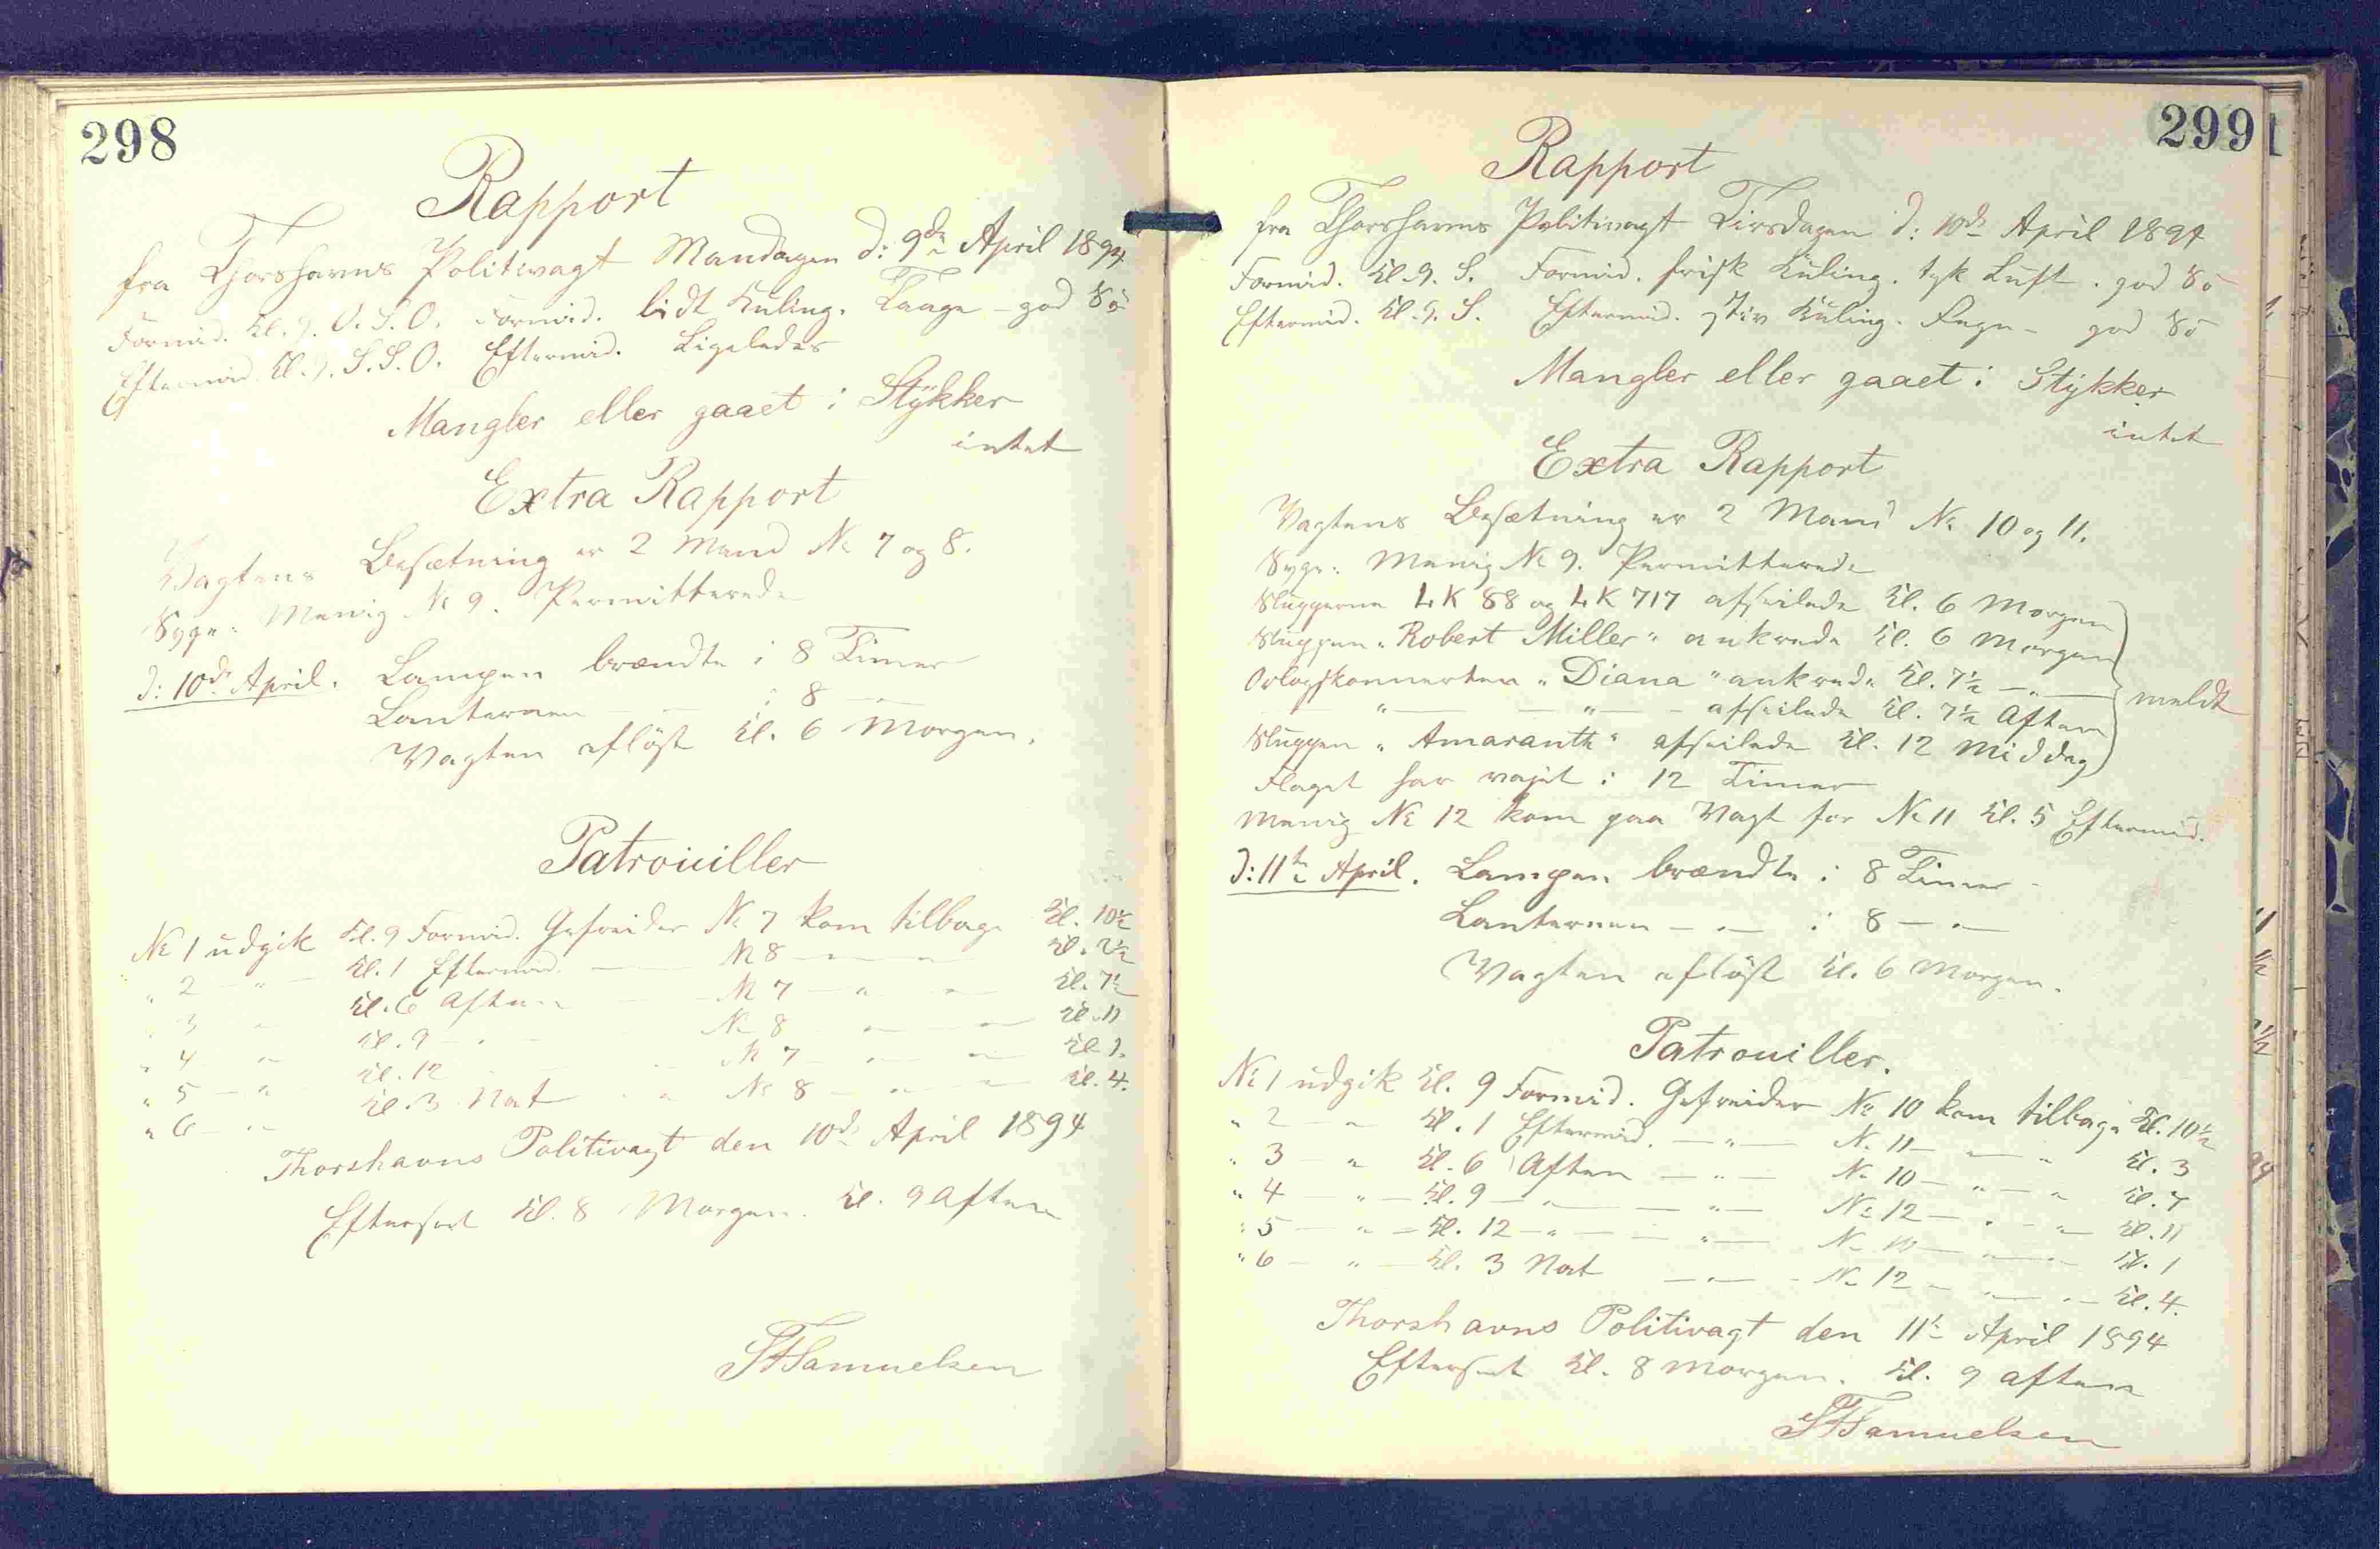 298
Rapport
fra Thorshavns Politivagt Mandagen d: 9de April 1894
Formid. Kl. 9. O.S.O. Formid. lidt Kuling. Taage - god Sö
Eftermid. Kl. 9. S.S.O. Eftermid. Ligeledes
Mangler eller gaaet i Stykker
intet
Extra Rapport
Vagtens Besætning er 2 Mand No 7 og 8.
Syge: Menig No 9. Permitterede
d: 10de April. Lampen brændte i 8 Timer
Lanternen — i 8 —
Vagten aflöst Kl. 6 Morgen.
Patrouiller
No 1 udgik Kl. 9 Formid. Gefreider No 7 kom tilbage Kl. 10½
" 2 - " - Kl. 1 Eftermid. — No 8 — " — Kl. 2½
" 3 " Kl. 6 Aften — No 7 — " — Kl. 7½
" 4 " Kl. 9 - " - No 8 — " — Kl. 11
" 5 - " Kl. 12 — No 7 — " — Kl. 1.
" 6 - " Kl. 3 Nat " No 8 — " — Kl. 4.
Thorshavns Politivagt den 10de April 1894
Efterset Kl. 8 Morgen. Kl. 9 Aften
Samuelsen
299
Rapport
fra Thorshavns Politivagt Tirsdagen d: 10de April 1894
Formid. Kl. 9. S. Formid. frisk Kuling. tyk Luft. god Sö
Eftermid. Kl. 9. S. Eftermid. stiv Kuling. Regn - god Sö
Mangler eller gaaet i Stykker
intet
Extra Rapport
Vagtens Besætning er 2 Mand No 10 og 11.
Syge: Menig No 9. Permitterede
Sluggerne LK 88 og LK 717 afseilede Kl. 6 Morgen
Sluppen "Robert Miller" ankrede Kl. 6 Morgen
Orlogskonnerten "Diana" ankrede Kl. 7½ — " — meldt
— " — — " — afseilede Kl. 7½ Aften
Sluppen "Amaranth" afseilede Kl. 12 Middag
Flaget har vajet i 12 Timer
Menig No 12 kom paa Vagt for No 11 Kl. 5 Eftermid.
d: 11te April. Lampen brændte i 8 Timer
Lanternen — " — i 8 — " —
Vagten aflöst Kl. 6 Morgen.
Patrouiller.
No 1 udgik Kl. 9 Formid. Gefreider No 10 kom tilbage Kl. 10½
" 2 - " Kl. 1 Eftermid. — " — No 11 — " — " Kl. 3
" 3 " Kl. 6 Aften — " — No 10 — " — " Kl. 7
" 4 — " — Kl. 9 — " — — " — No 12 — " — " Kl. 11
" 5 — " — Kl. 12 — " — — " — No 10 — " — Kl. 1
" 6 — " — Kl. 3 Nat — " — No 12 — " — " — Kl. 4.
Thorshavns Politivagt den 11te April 1894
Efterset Kl. 8 Morgen. Kl. 9 Aften
Samuelsen